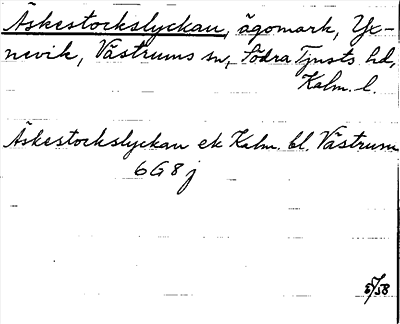 Äskestockslyckan, ägomark, Yx-
nevik, Västrums sn, Södra Tjusts hd,
Kalm. l.
Äskestockslyckan ek Kalm. bl. Västrum
6G8j
5/58